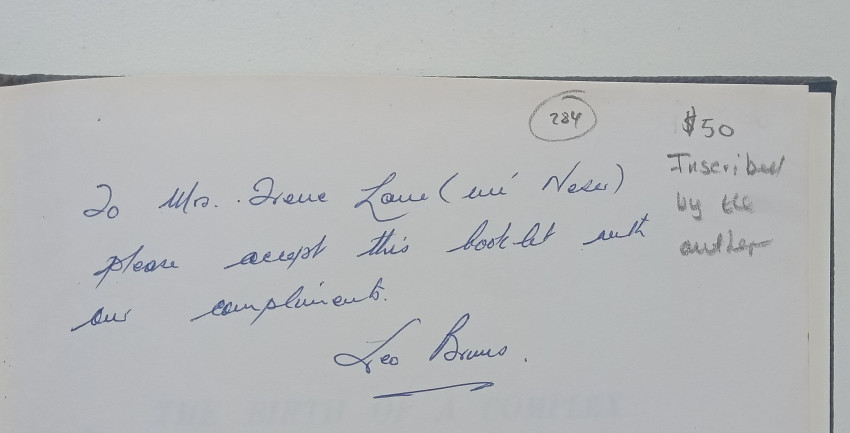 284
$50
Inscribed
by the
author
To Mrs. Irene Lane (née Neser)
please accept this booklet with
our compliments.
Leo Bruns.